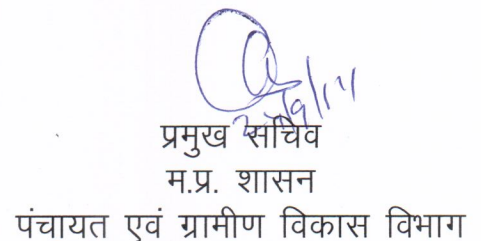 प्रमुख सचिव
म.प्र. शासन
पंचायत एवं ग्रामीण विकास विभाग